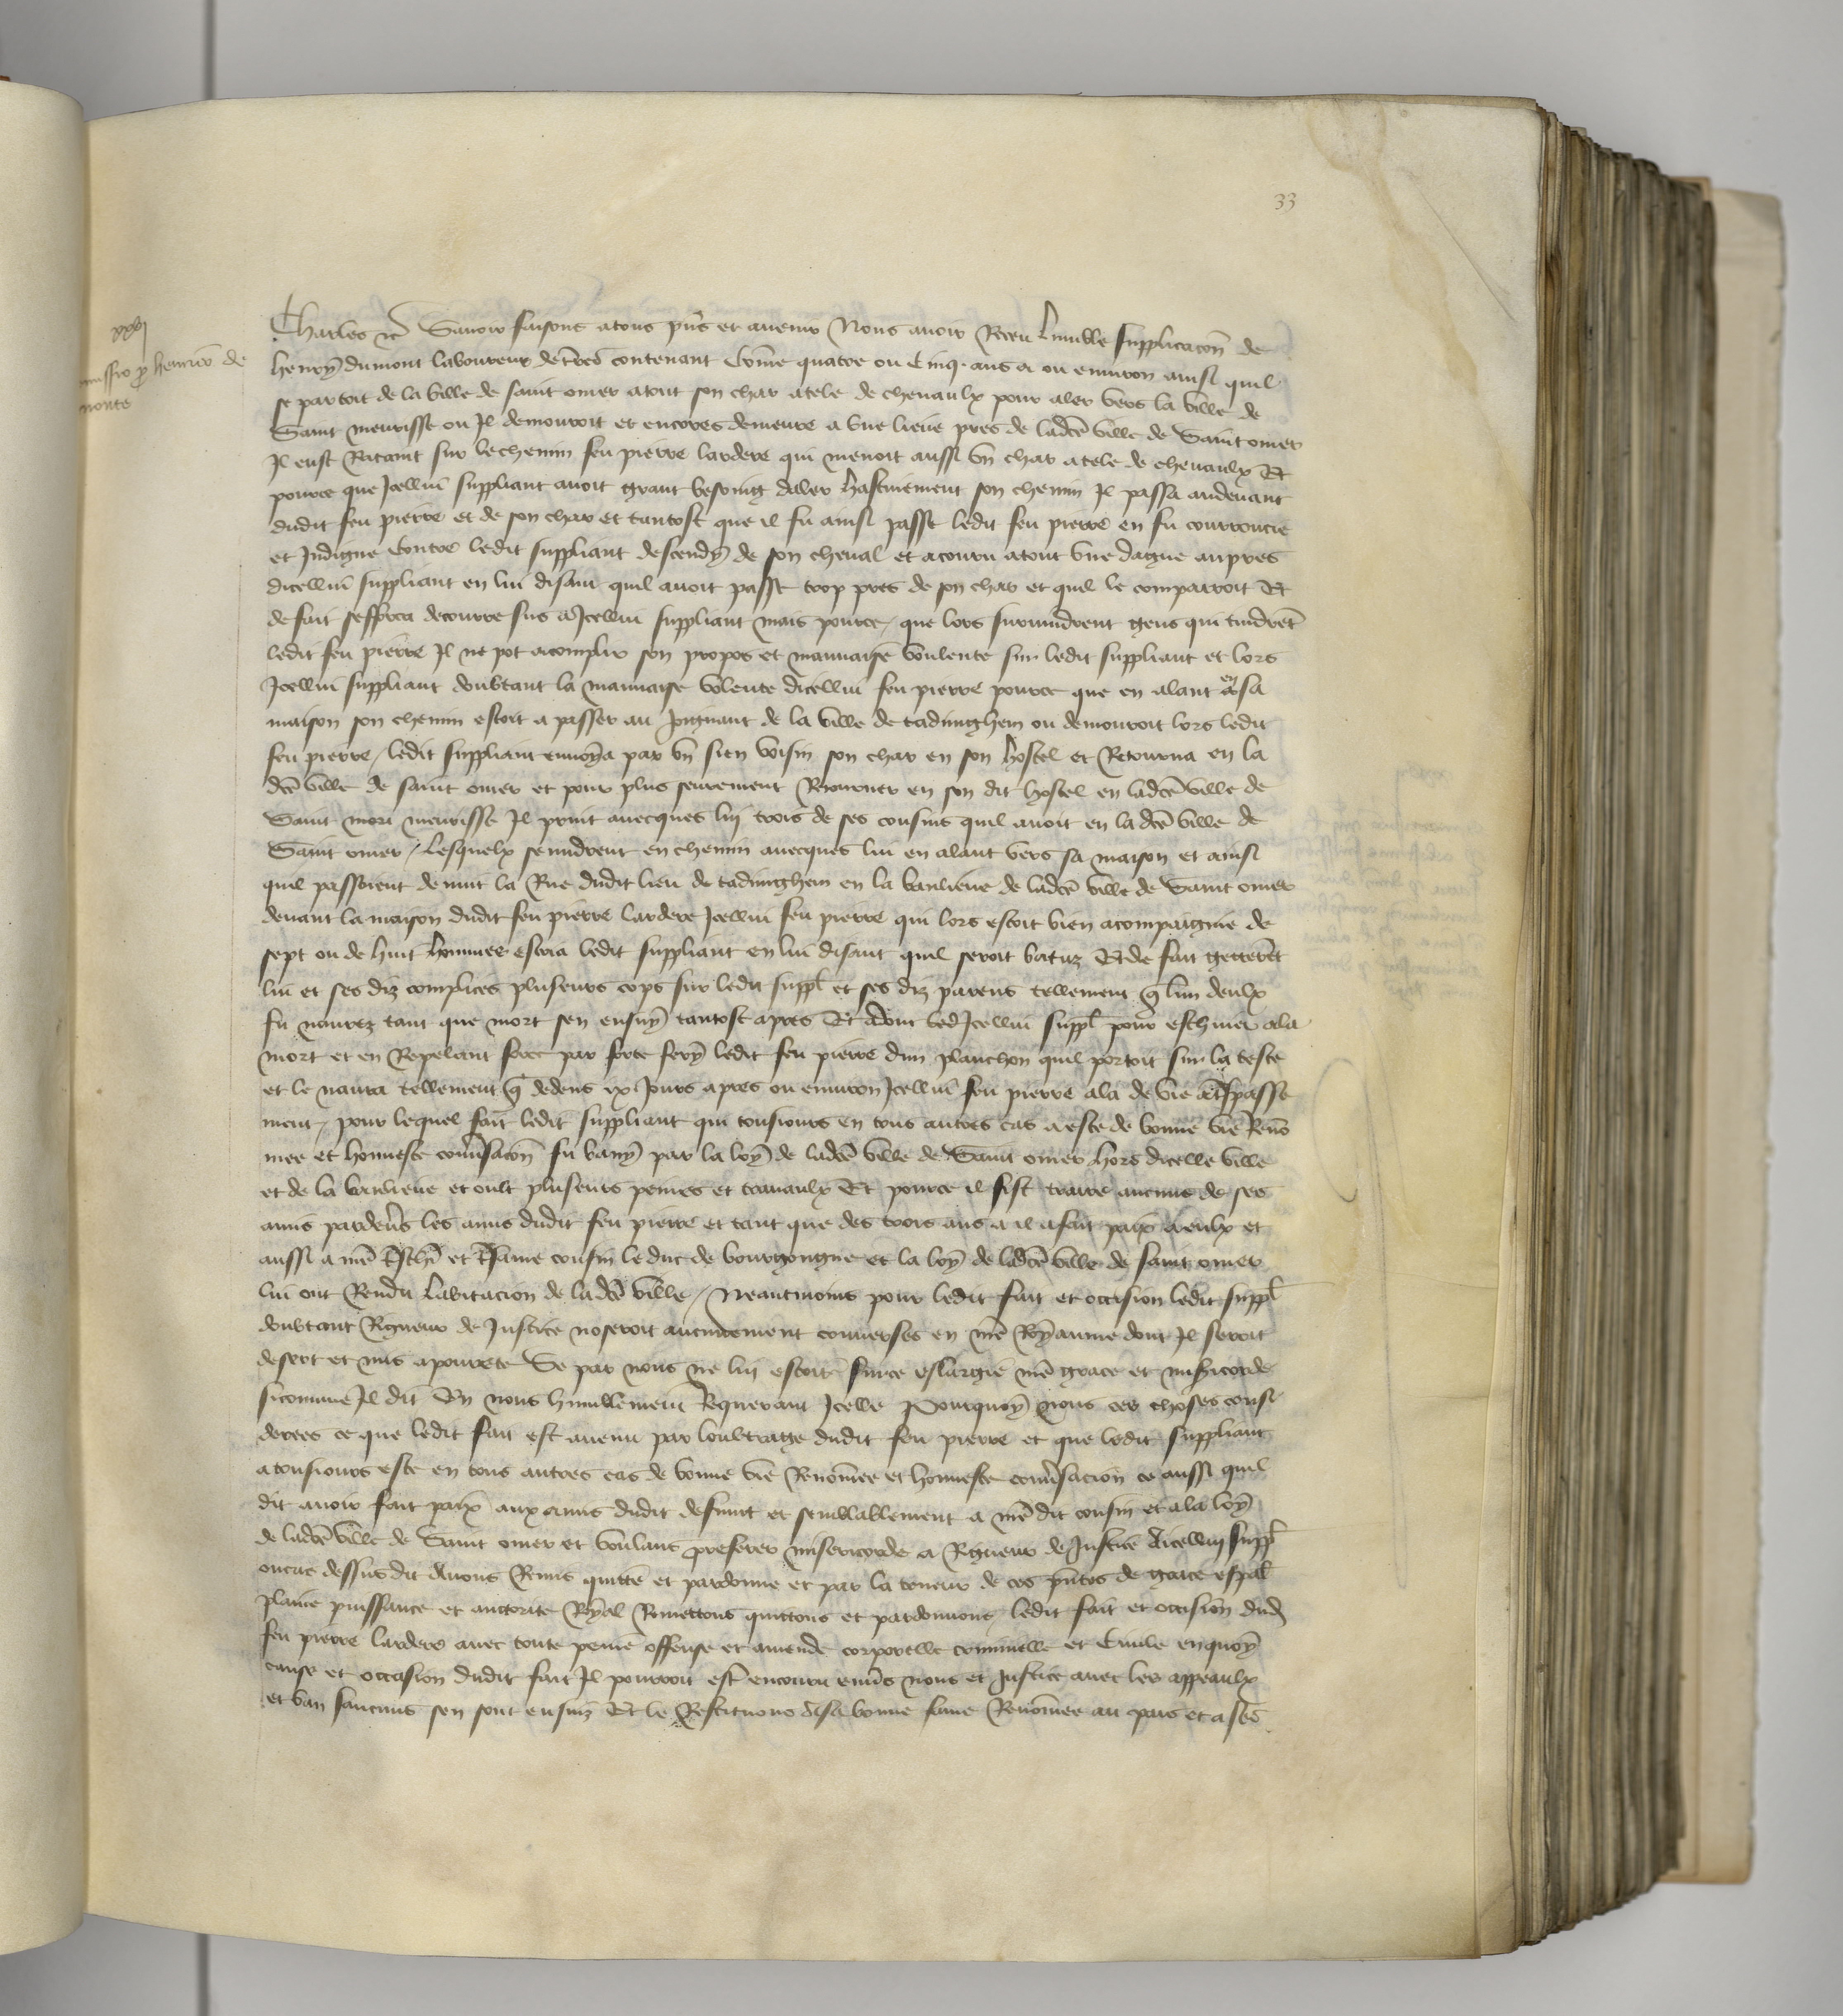 33
xxvj
missio p henrico de
monte
Charles etc Savoir faisons a tous pñs et avenir Nous avoir Receu lumble supplicacõn de
henry dumont laboureur de tres contenant Cõme quatre ou Cinq ans a ou environ ainsi quil
se partoit de la ville de saint omer atout son char atele de chevaulx pour aler vers la ville de
Saint meurisse ou Il demouroit et encores demeure a une lieue pres de ladcẽ ville de Saint omer
Il eust Rataint sur le chemin feu pierre lardere qui menoit aussi vñ char atele de chevaulx Et
pource que Icellui suppliant avoit grant besoing daler hastivement son chemin Il passa audevant
dudit feu pierre et de son char et tantost que il fu ainsi passe ledit feu pierre en fu courroucie
et Indigne Contre ledit suppliant descendy de son cheval et acouru atout une dague aupres
dicellui suppliant en lui disant quil avoit passe trop pres de son char et quil le comparroit Et
de fait sefforca de courre sus a Icellui suppliant mais pource que lors survindrent gens qui tindrẽt
ledit feu pierre Il ne pot acomplir son propos et mauvaise voulente sur ledit suppliant et lors
Icellui suppliant doubtant la mauvaise volente dicellui feu pierre pource que en alant en sa
maison son chemin estoit a passer au Joignant de la ville de tadinghem ou demouroit lors ledit
feu pierre / ledit suppliant envoya par vñ sien voisin son char en son hostel et Retourna en la
dcẽ ville de saint omer et pour plus seurement Retourner en son dit hostel en ladcẽ ville de
Saint mori meurisse Il print avecques luj trois de ses cousins quil avoit en la dcẽ ville de
Saint omer / lesquelx se mirent en chemin avecques lui en alant vers sa maison et ainsi
quil passoient de nuit la Rue dudit lieu de tadinghem en la banlieue de ladcẽ ville de Saint omer
devant la maison dudit feu pierre lardere Icellui feu pierre qui lors estoit bien acompaignie de
sept ou de huit hommes escria ledit suppliant en lui disant quil seroit batuz Et de fait getterẽt
lui et ses diz complices pluseurs cops sur ledit suppl et ses diz parens tellement q̃ lun deulx
fu navrez tant que mort sen ensuy tantost apres Et adonc Icellui suppl pour eschiver a la
mort et en Repelant force par force fery ledit feu pierre dun planchon quil portoit sur la teste
et le navra tellement q̃ dedens ix Jours apres ou environ Icellui feu pierre ala de vie a t̃spasse
ment / pour lequel fait ledit suppliant qui tousiours en tous autres cas a este de bonne vie Renõ
mee et honneste conv̾sacõn fu bany par la loy de ladcẽ ville de Saint omer hors dicelle ville
et de la banlieue et oult pluseurs peines et travaulx Et pource il fist traire aucuns de ses
amis pardev̾s les amis dudit feu pierre et tant que des trois ans a il a fait paix a eulx et
aussi a nrẽ t̃schr̃ et t̃same cousin le duc de bourgongne et la loy de ladcẽ ville de saint omer
lui ont Rendu labitacion de ladcẽ ville / Neantmoins pour ledit fait et occision ledit suppl
doubtant Rigueur de Justice noseroit aucunement converser en nrẽ Royaume dont Il seroit
desert et mis a pourete Se par nous ne luj estoit surce eslargie nrẽ grace et mis̃icorde
sicomme Il dit En nous humblement Requerant Icelle Pourquoy nous ces choses consi
derees ce que ledit fait est avenu par loultrage dudit feu pierre et que ledit suppliant
a tousiours este en tous autres cas de bonne vie Renõmee et honneste conv̾sacion ce aussi quil
dit avoir fait paix aux amis dudit defunt et semblablement a nrẽ dit cousin et a la loy
de ladcẽ ville de Saint omer et voulans preferer misericorde a Rigueur de Justice A icelluj suppl
ou cas dessus dit Avons Remis quitte et pardonne et par la teneur de ces pñtes de grace esp̾al
plaine puissance et auctorite Royal Remettons quittons et pardonnons ledit fait et occision dud
feu pierre lardere avec toute peine offense et amende corporelle criminelle et Civile en quoy
cause et occasion dudit fait Il pourroit estr̃ encouru env̾s nous et Justice avec les appeaulx
et ban saucuns sen sont ensuiz Et le Restituons a sa bonne fame Renõmee au pais et a ses